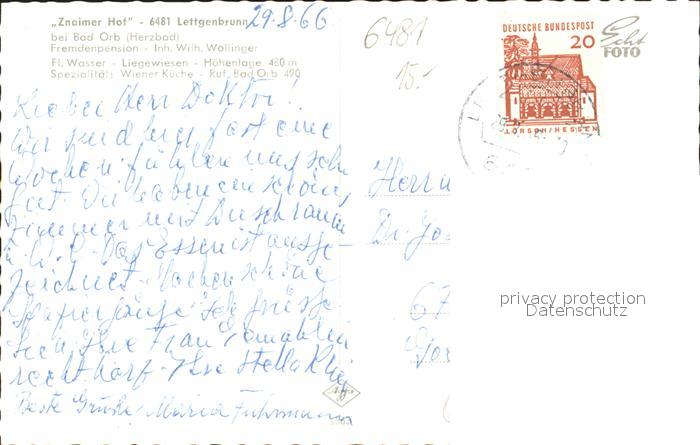 „Znaimer Hof" - 6481 Lettgenbrunn
29.8.66
bei Bad Orb (Herzbad)
Fremdenpension - Inh. Wilh. Wollinger
Fl. Wasser - Liegewiesen - Höhenlage 480 m
Spezialität: Wiener Küche - Ruf, Bad Orb 490
6481
15.-
DEUTSCHE BUNDESPOST
20
LORSCH/HESSEN
Echt
FOTO
Lieber Herr Doktor!
Wir sind hier fast eine
Wochen fühlen uns sehr
gut. Wir haben ein schönes
Zimmer mit Duschraum
u. W.C. Das Essen ist ausge-
zeichnet. Machen schöne
Spaziergänge. Ich grüsse
Sie Ihre Frau Gemahlin
recht herzl. Ihre Stella
Beste Grüße Maria Fuhrmann
Herrn
Dr.
67
privacy protection
Datenschutz